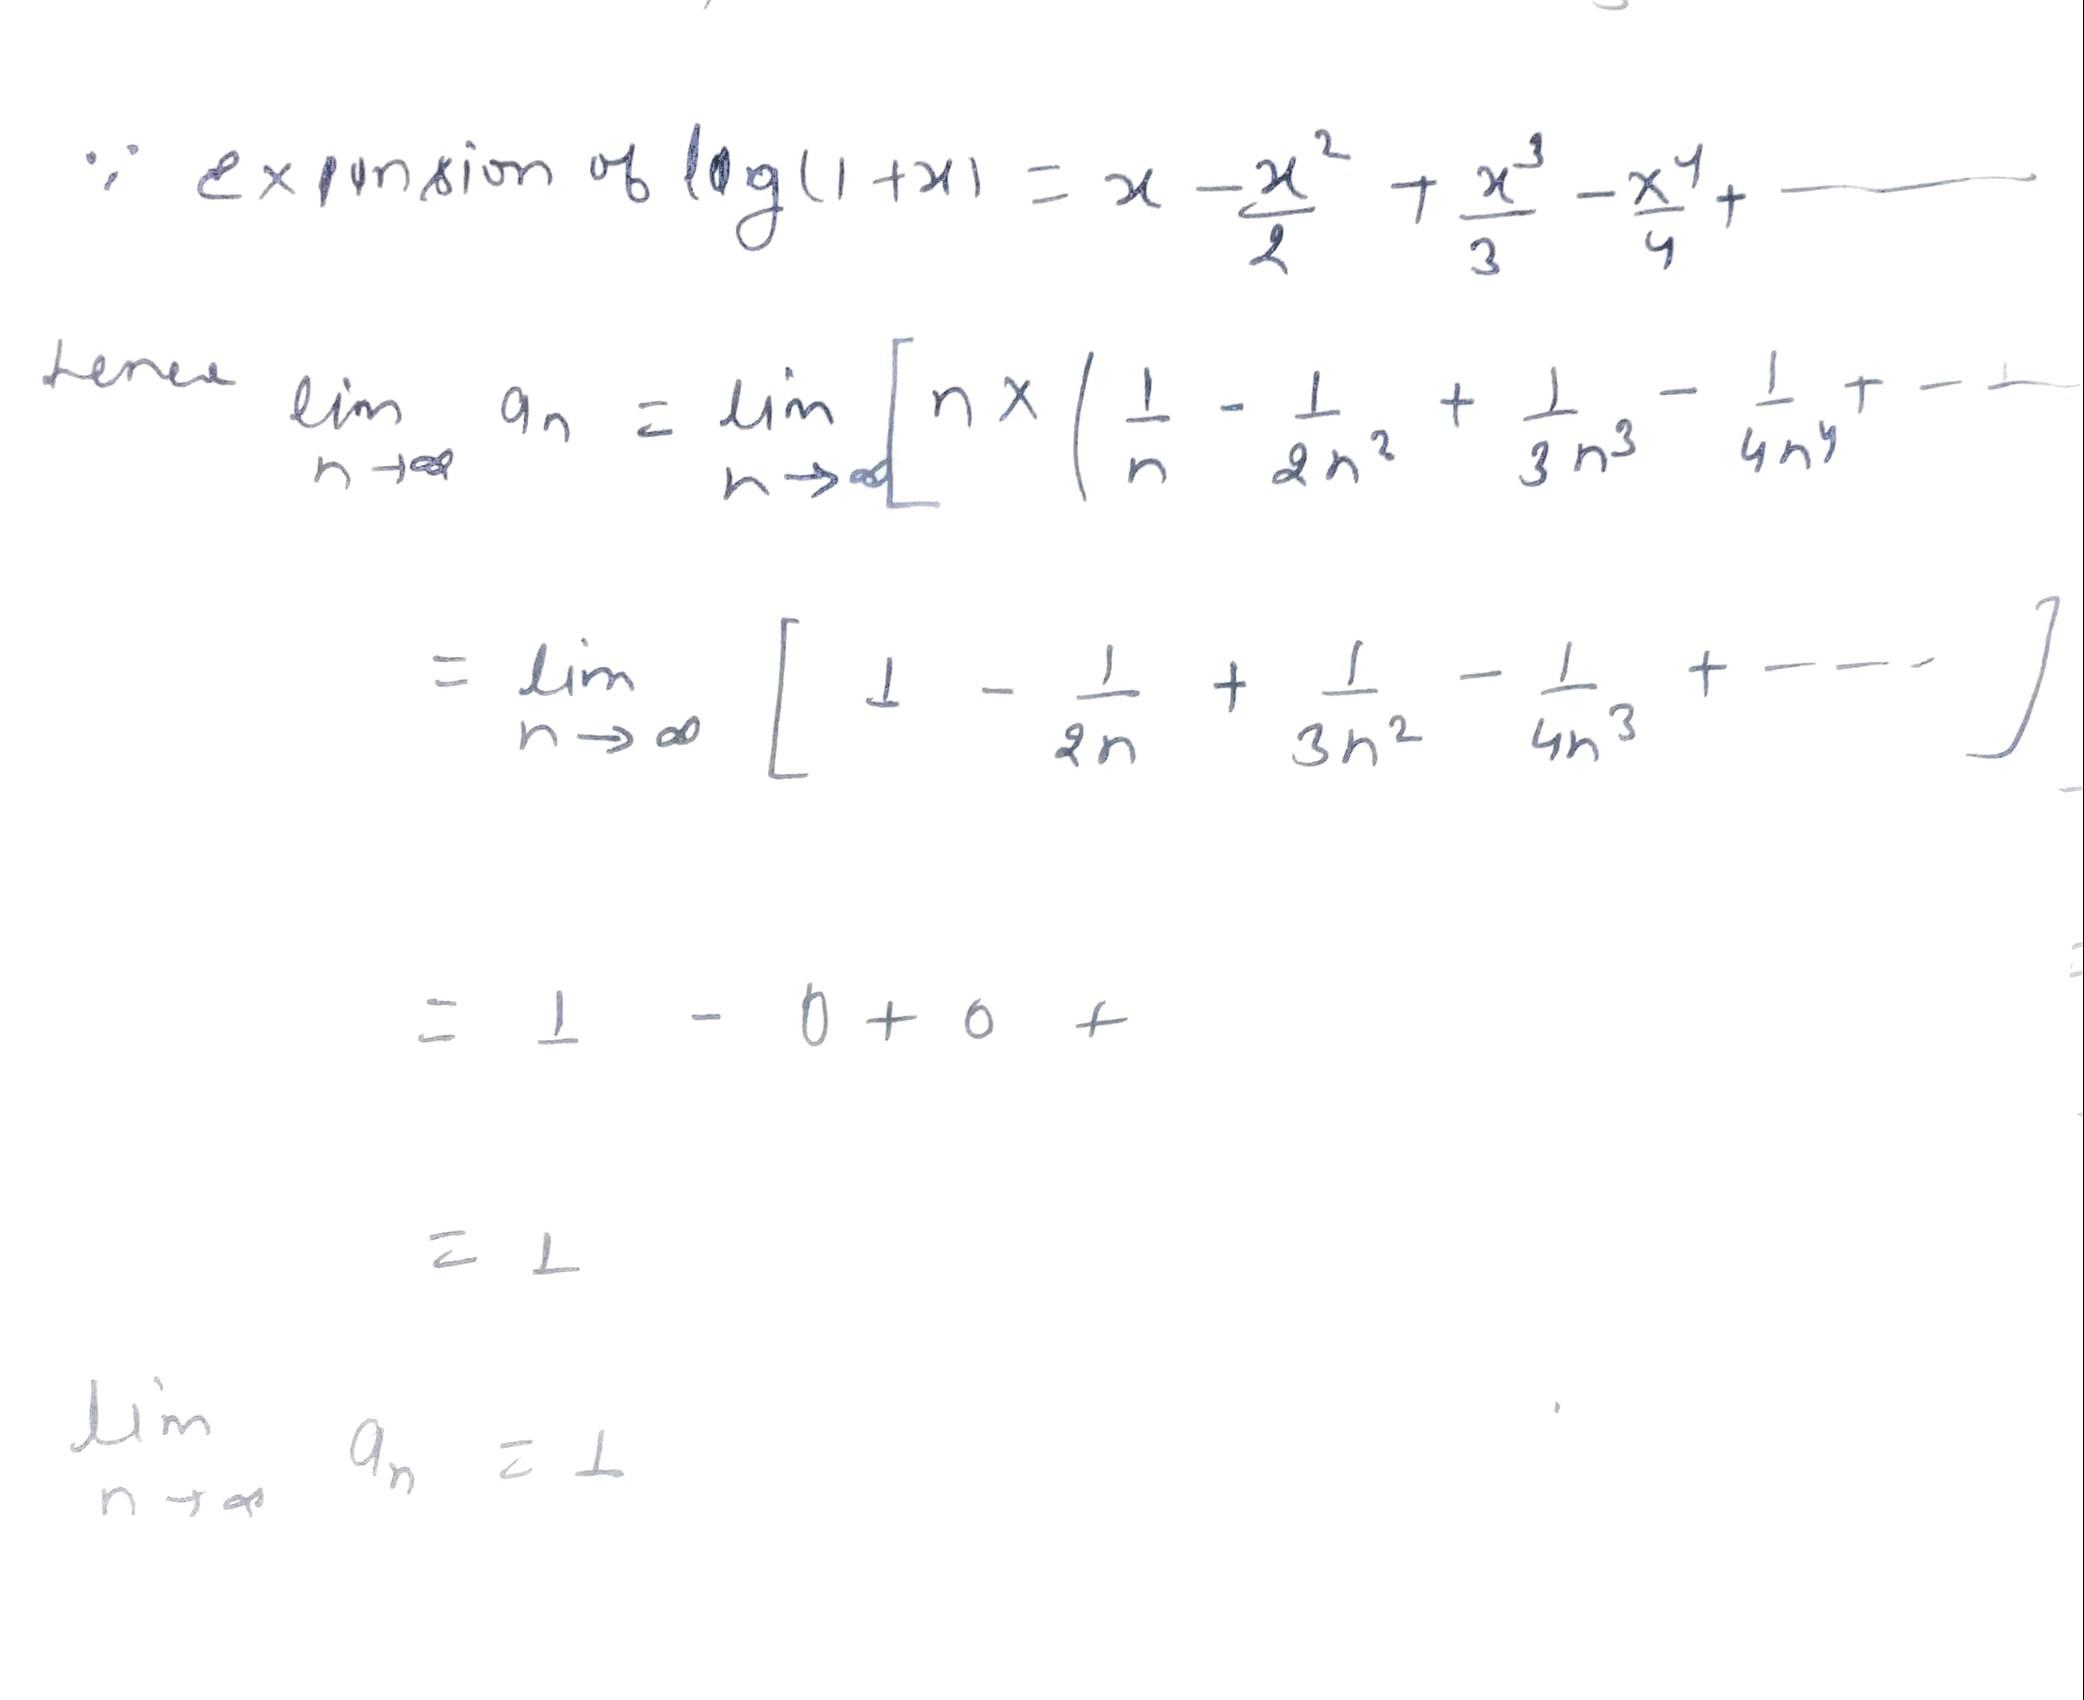 ∵ expansion of log(1+x) = x - x²/2 + x³/3 - x⁴/4 + ———
hence lim n→∞ aₙ = lim n→∞ [ n × ( 1/n - 1/2n² + 1/3n³ - 1/4n⁴ + - -
= lim n→∞ [ 1 - 1/2n + 1/3n² - 1/4n³ + ---- ]
= 1 - 0 + 0 +
= 1
lim n→∞ aₙ = 1